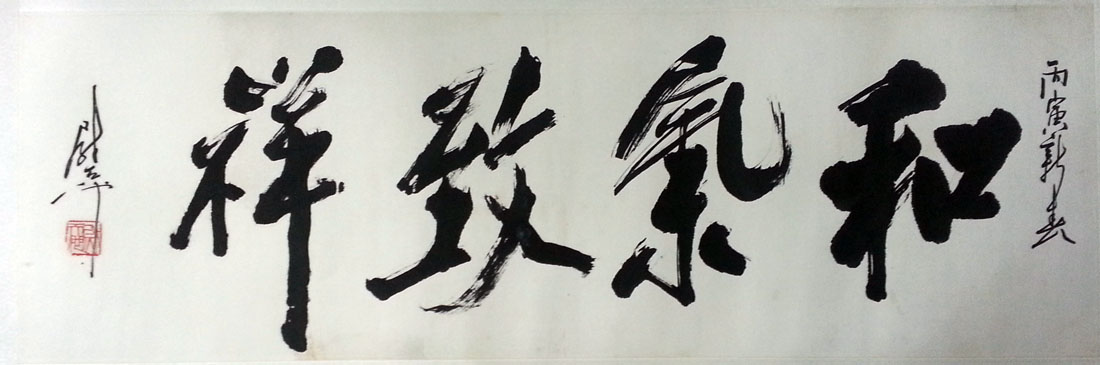 丙寅新春
和氣致祥